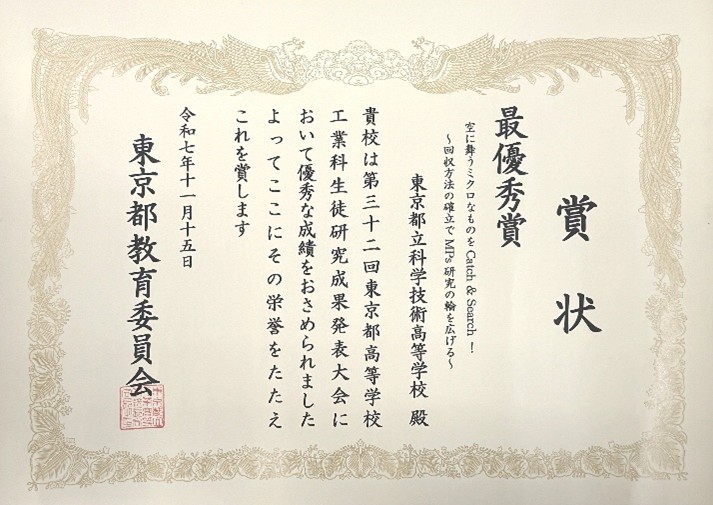 賞状
最優秀賞
空に舞うミクロなものを Catch & Search !
〜回収方法の確立で MPs 研究の輪を広げる〜
東京都立科学技術高等学校 殿
貴校は第三十二回東京都高等学校
工業科生徒研究成果発表大会に
おいて優秀な成績をおさめられました
よってここにその栄誉をたたえ
これを賞します
令和七年十一月十五日
東京都教育委員会